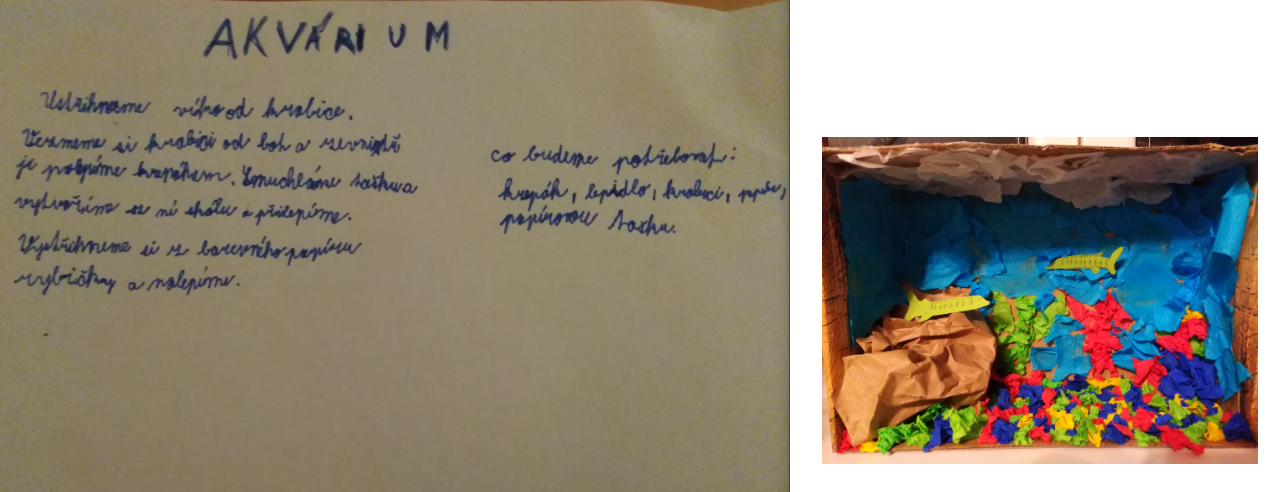 AKVÁRIUM
Ustřihneme víko od krabice.
Vezmeme si krabici od bot a zevnitř
je polepíme krepákem. Zmuchláme tašku a
vytvoříme ze ní skálu a přilepíme.
Vystřihneme si z barevného papíru
rybičky a nalepíme.
co budeme potřebovat:
krepák, lepidlo, krabici, papír,
papírovou tašku.